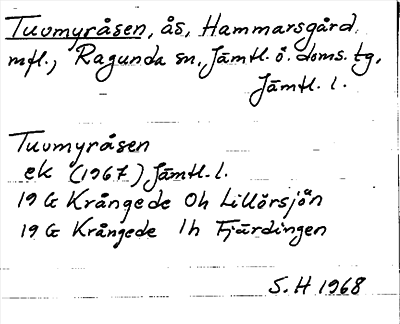 Tuvmyråsen, ås, Hammarsgård
mfl., Ragunda sn, Jämtl. ö. doms. tg,
Jämtl. l.
Tuvmyråsen
ek (1967) Jämtl. l.
19 G Krångede 0h Lillörsjön
19 G Krångede 1h Fjärdingen
S. H 1968